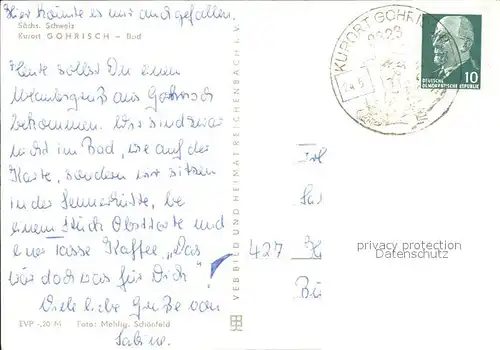 Hier könnte es mir auch gefallen.
Sächs. Schweiz
Kurort GOHRISCH – Bad
Heute sollst Du einen
Urlaubsgruß aus Gohrisch
bekommen. Wir sind zwar
nicht im Bad, wie auf der
Karte, sondern wir sitzen
in der Sennerhütte, bei
einem Stück Obsttorte und
einer Tasse Kaffee. „Das
wär doch was für Dich"
Viele liebe Grüße von
Sabine.
EVP -,20 M Foto: Mehlig, Schönfeld
VEB BILD UND HEIMAT REICHENBACH I. V.
KURORT GOHRI
8323
DEUTSCHE
DEMOKRATISCHE REPUBLIK
10
427
privacy protection
Datenschutz